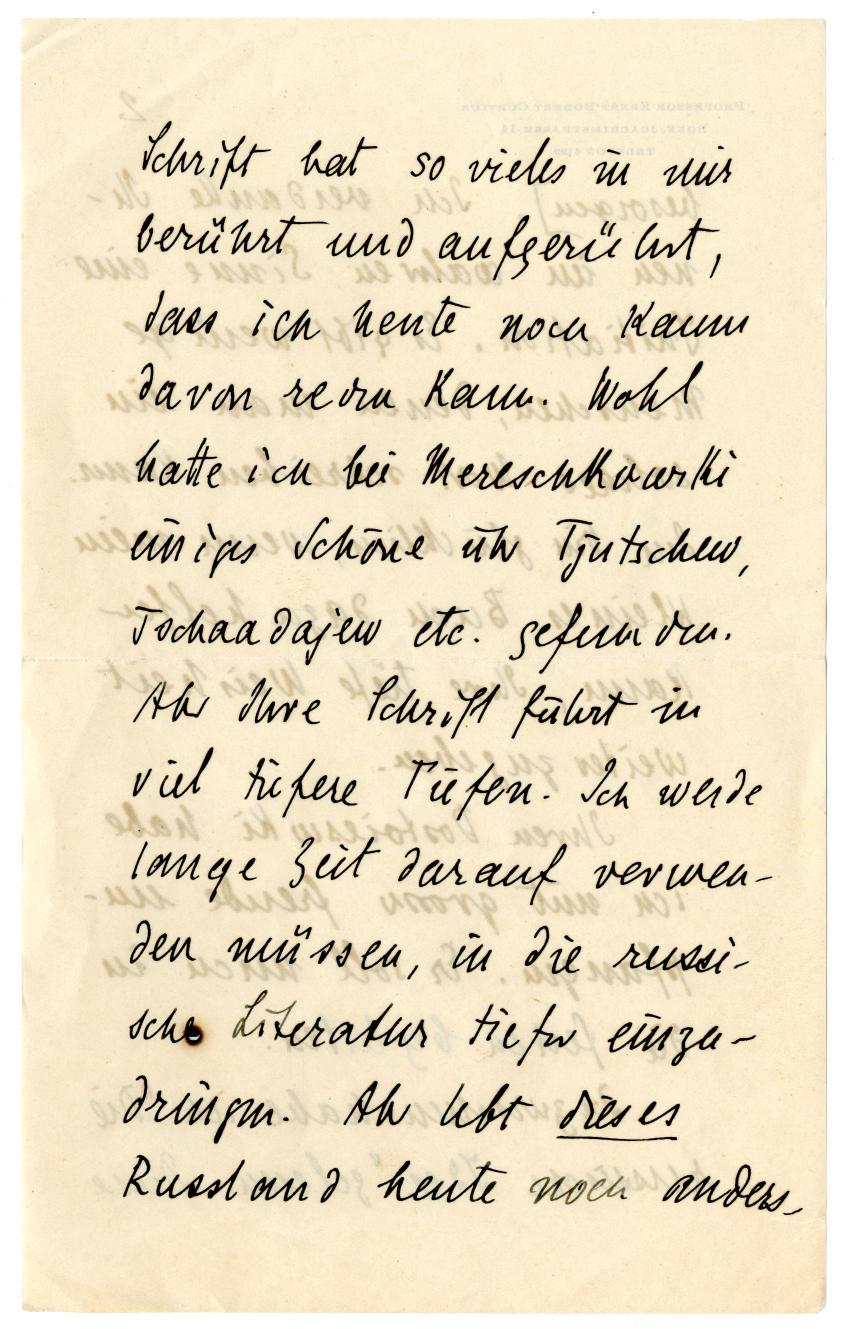 Schrift hat so vieles in mir
berührt und aufgerührt,
dass ich heute noch kaum
davon reden kann. Wohl
hatte ich bei Mereschkowski
einiges Schöne über Tjutschew,
Tschaadajew etc. gefunden.
Aber Ihre Schrift führt in
viel tiefere Tiefen. Ich werde
lange Zeit darauf verwen-
den müssen, in die russi-
sche Literatur tiefer einzu-
dringen. Aber lebt dieses
Russland heute noch anders-